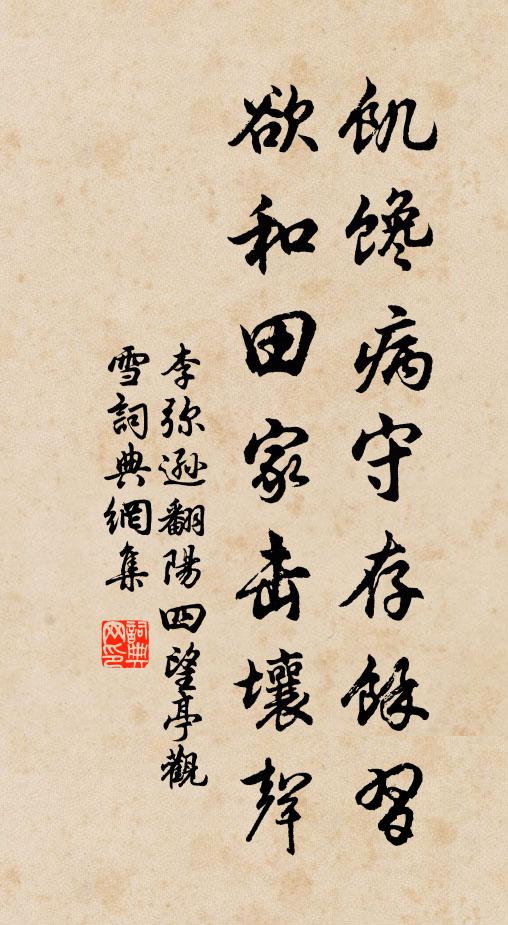 飢馋病守存餘習
欲和田家击壤聲
李弥遜翻陽四望亭觀
雪詞典網集
詞典
网印